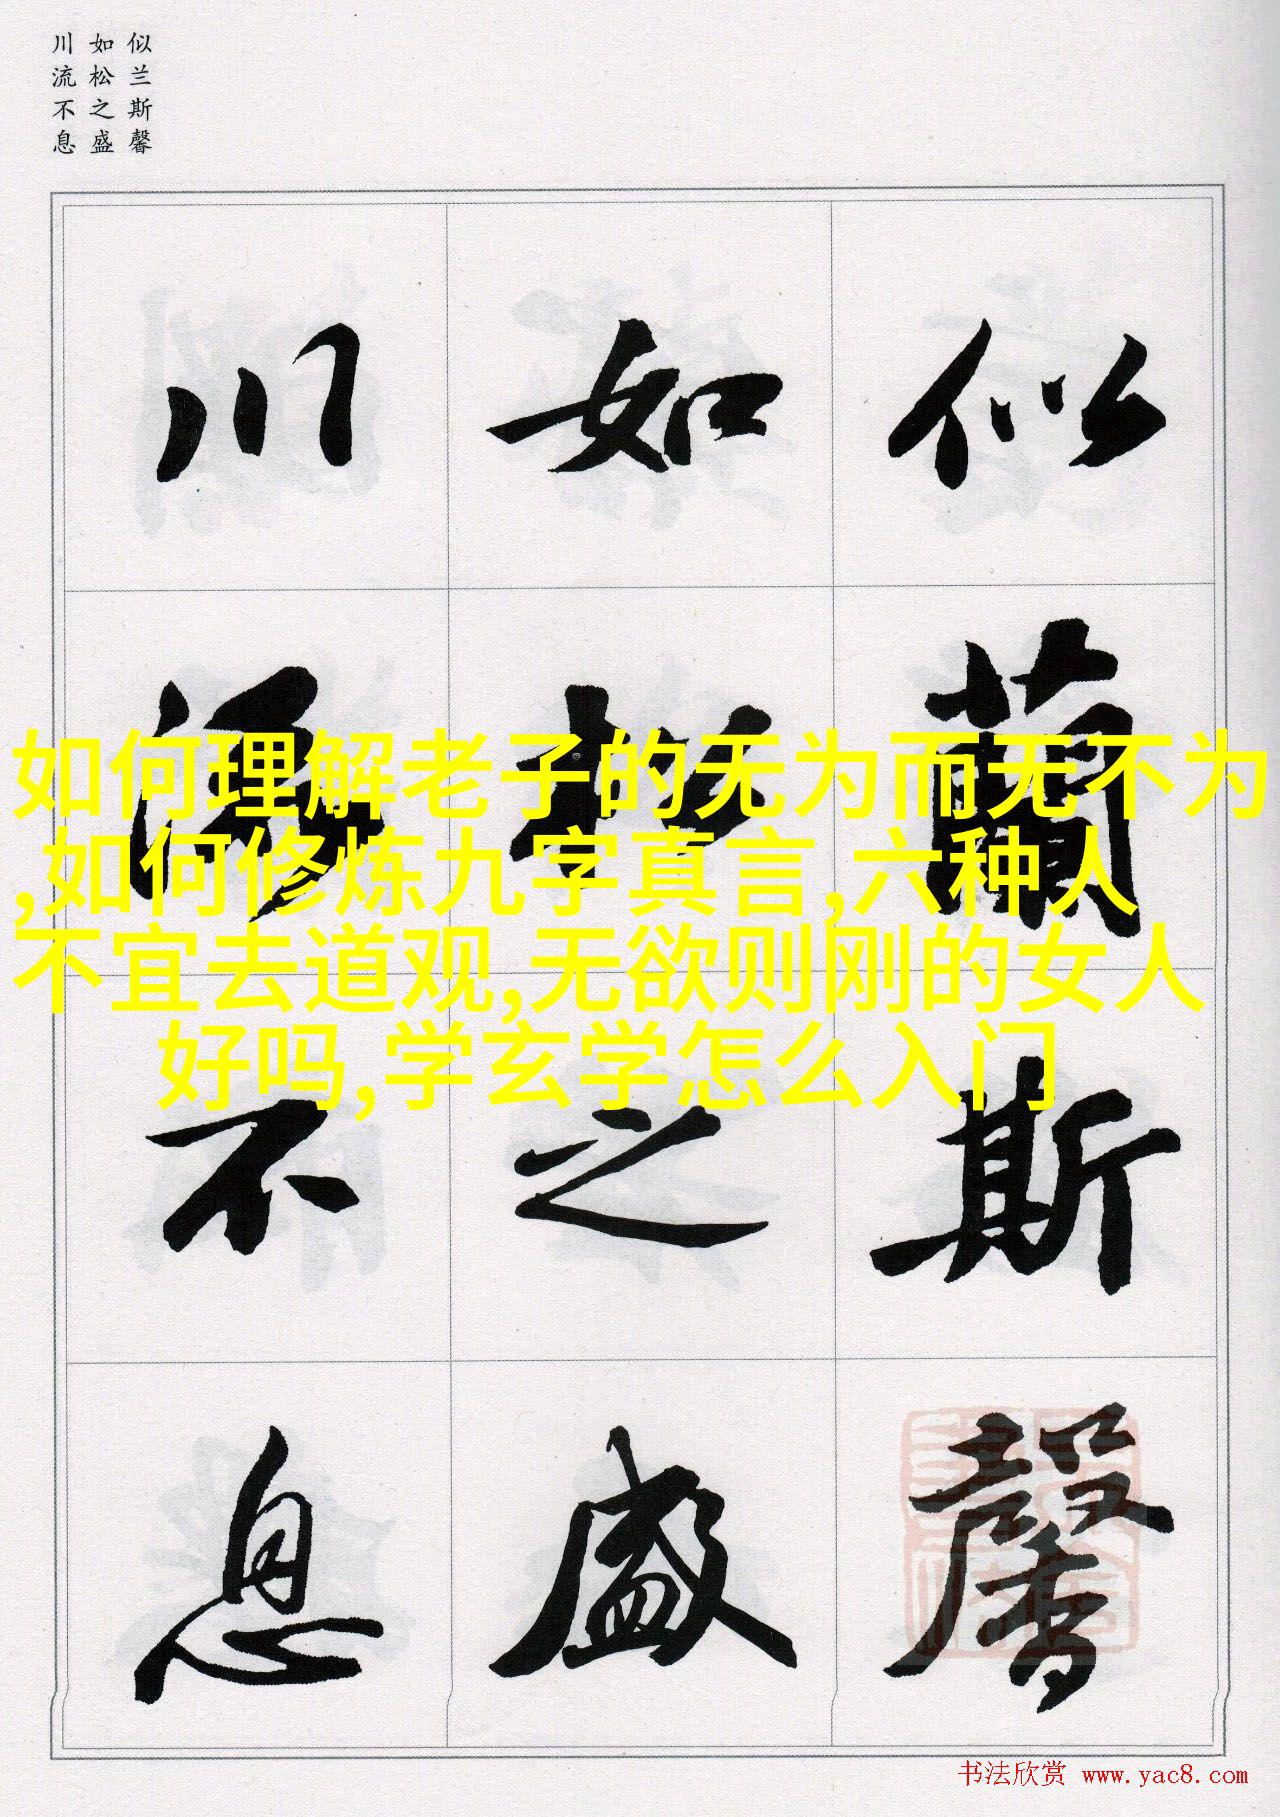 似兰斯馨
如松之盛
川流不息
似蘭斯馨
如松之盛
川流不息
如何理解老子的无为而无不为
,如何修炼九字真言,六种人
不宜去道观,无欲则刚的女人
好吗,学玄学怎么入门
书法欣赏 www.yac8.com